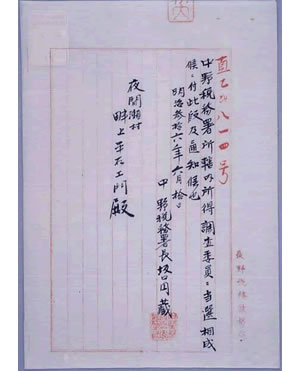 直乙第八一四号
中野税務署所轄内所得調査委員ニ当選相成
候ニ付此段及通知候也
明治参拾六年六月拾日
中野税務署長坂口円蔵
夜間瀬村
畔上平左エ門殿